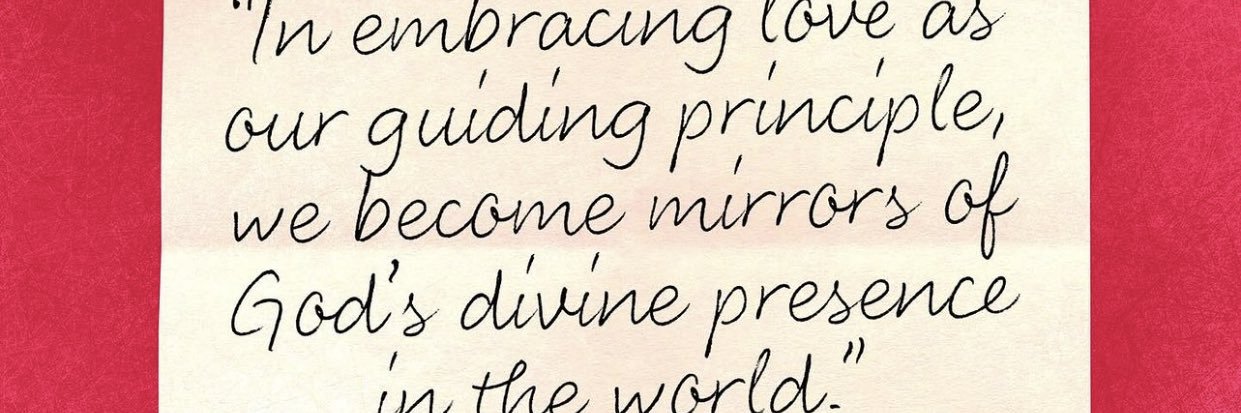 "In embracing love as
our guiding principle,
we become mirrors of
God's divine presence
in the world."